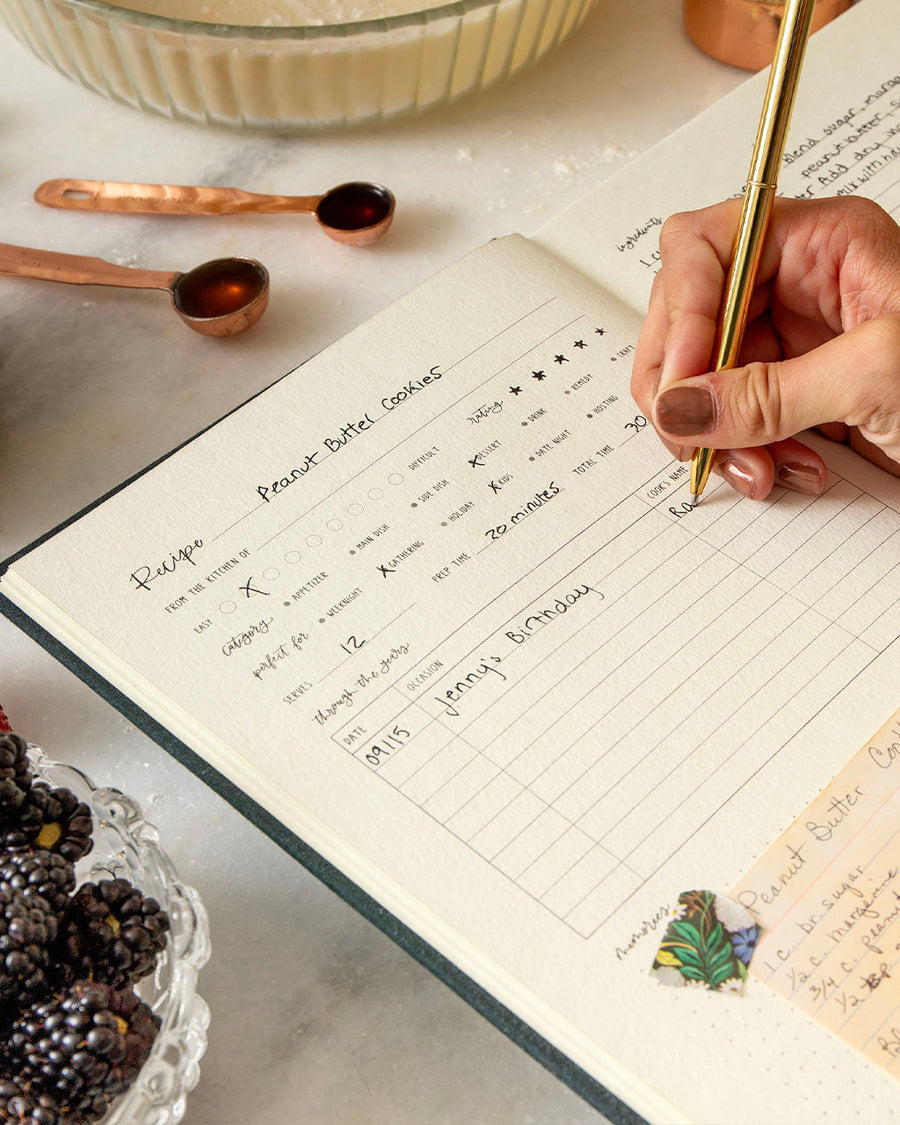 Recipe Peanut Butter Cookies
FROM THE KITCHEN OF
rating ★ ★ ★ ★ ★
EASY X DIFFICULT
category APPETIZER MAIN DISH SIDE DISH X DESSERT DRINK REMEDY CRAFT
perfect for WEEKNIGHT X GATHERING HOLIDAY X KIDS DATE NIGHT HOSTING
SERVES 12 PREP TIME 20 minutes TOTAL TIME 30
through the years
DATE OCCASION COOK'S NAME
09/15 Jenny's Birthday Ra
memories
ingredients
1 c
Blend sugar,
peanut butter,
Add dry
mix with
Peanut Butter
1 c. br. sugar
1/2 c. margerine
3/4 c. peanut
1/2